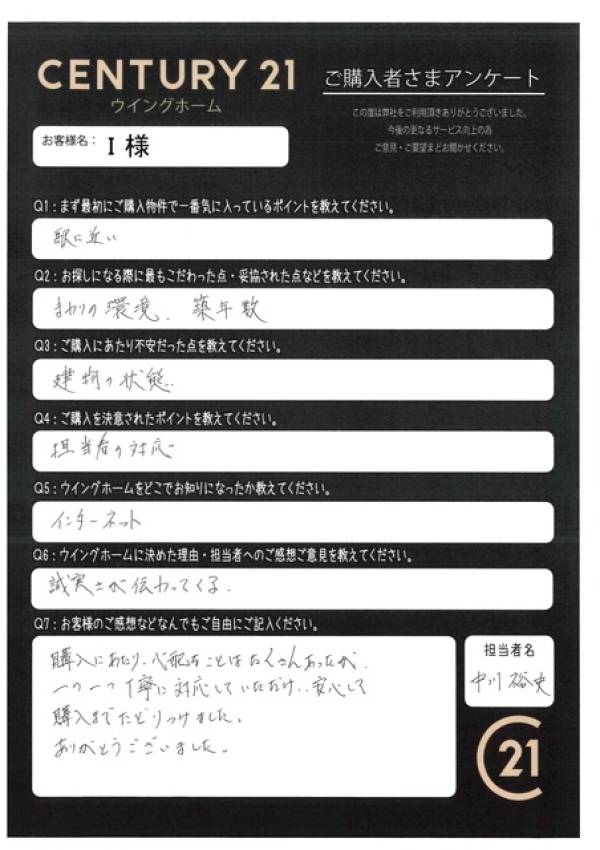 CENTURY 21
ウイングホーム
ご購入者さまアンケート
この度は弊社をご利用頂きありがとうございました。
今後の更なるサービス向上の為
ご意見・ご要望までお聞かせください。
お客様名: I 様
Q1:まず最初にご購入物件で一番気に入っているポイントを教えてください。
駅に近い
Q2:お探しになる際に最もこだわった点・妥協された点などを教えてください。
まわりの環境. 築年数
Q3:ご購入にあたり不安だった点を教えてください。
建物の状態..
Q4:ご購入を決意されたポイントを教えてください。
担当者の対応
Q5:ウイングホームをどこでお知りになったか教えてください。
インターネット
Q6:ウイングホームに決めた理由・担当者へのご感想ご意見を教えてください。
誠実さが伝わってくる.
Q7:お客様のご感想などなんでもご自由にご記入ください。
購入にあたり、心配なことはたくさんあったが、
一つ一つ丁寧に対応していただけ、安心して
購入までたどりつけました。
ありがとうございました。
担当者名
中川 裕史
C21